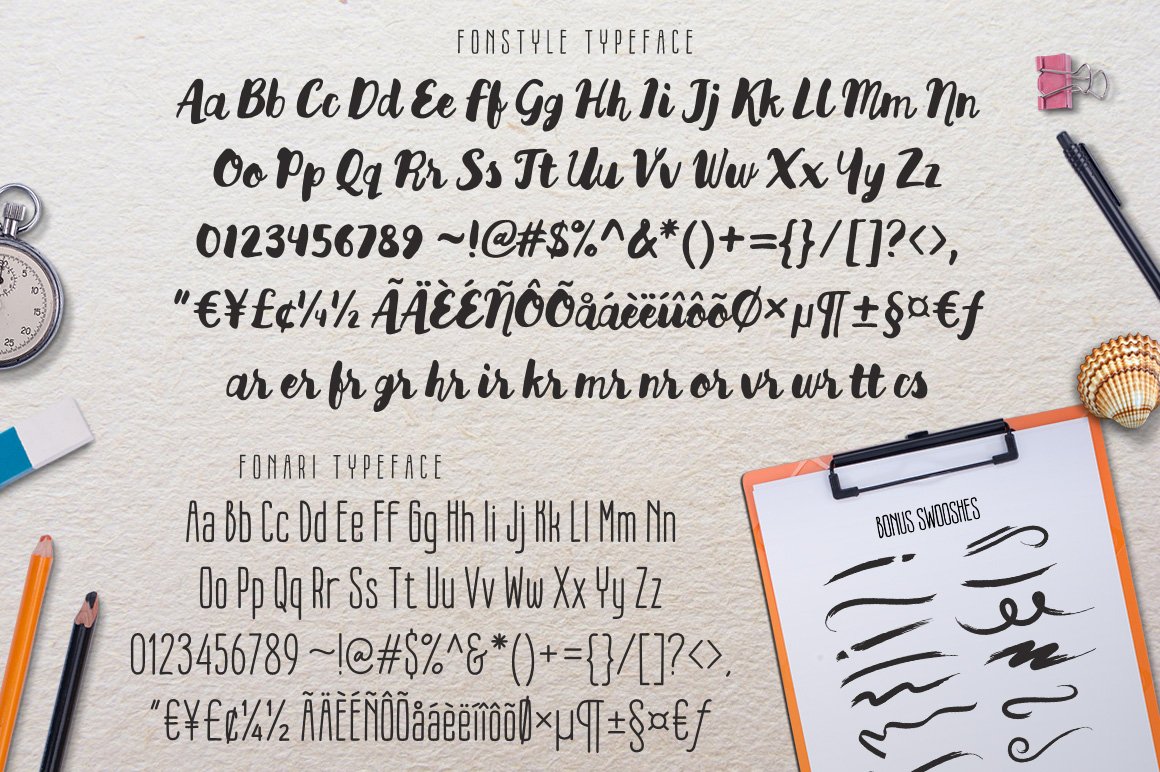 FONSTYLE TYPEFACE
Aa Bb Cc Dd Ee Ff Gg Hh Ii Jj Kk Ll Mm Nn
Oo Pp Qq Rr Ss Tt Uu Vv Ww Xx Yy Zz
0123456789 ~!@#$%^&*()+={}/[]?<>,
"€¥£¢¼½ ÃÄÈÉÑÔÕåáèëíîôõØ×µ¶±§¤€ƒ
ar er fr gr hr ir kr mr nr or vr wr tt cs
FONARI TYPEFACE
Aa Bb Cc Dd Ee Ff Gg Hh Ii Jj Kk Ll Mm Nn
Oo Pp Qq Rr Ss Tt Uu Vv Ww Xx Yy Zz
0123456789 ~!@#$%^&*()+={}/[]?<>,
"€¥£¢¼½ ÃÄÈÉÑÔÕåáèëíîôõØ×µ¶±§¤€ƒ
BONUS SWOOSHES